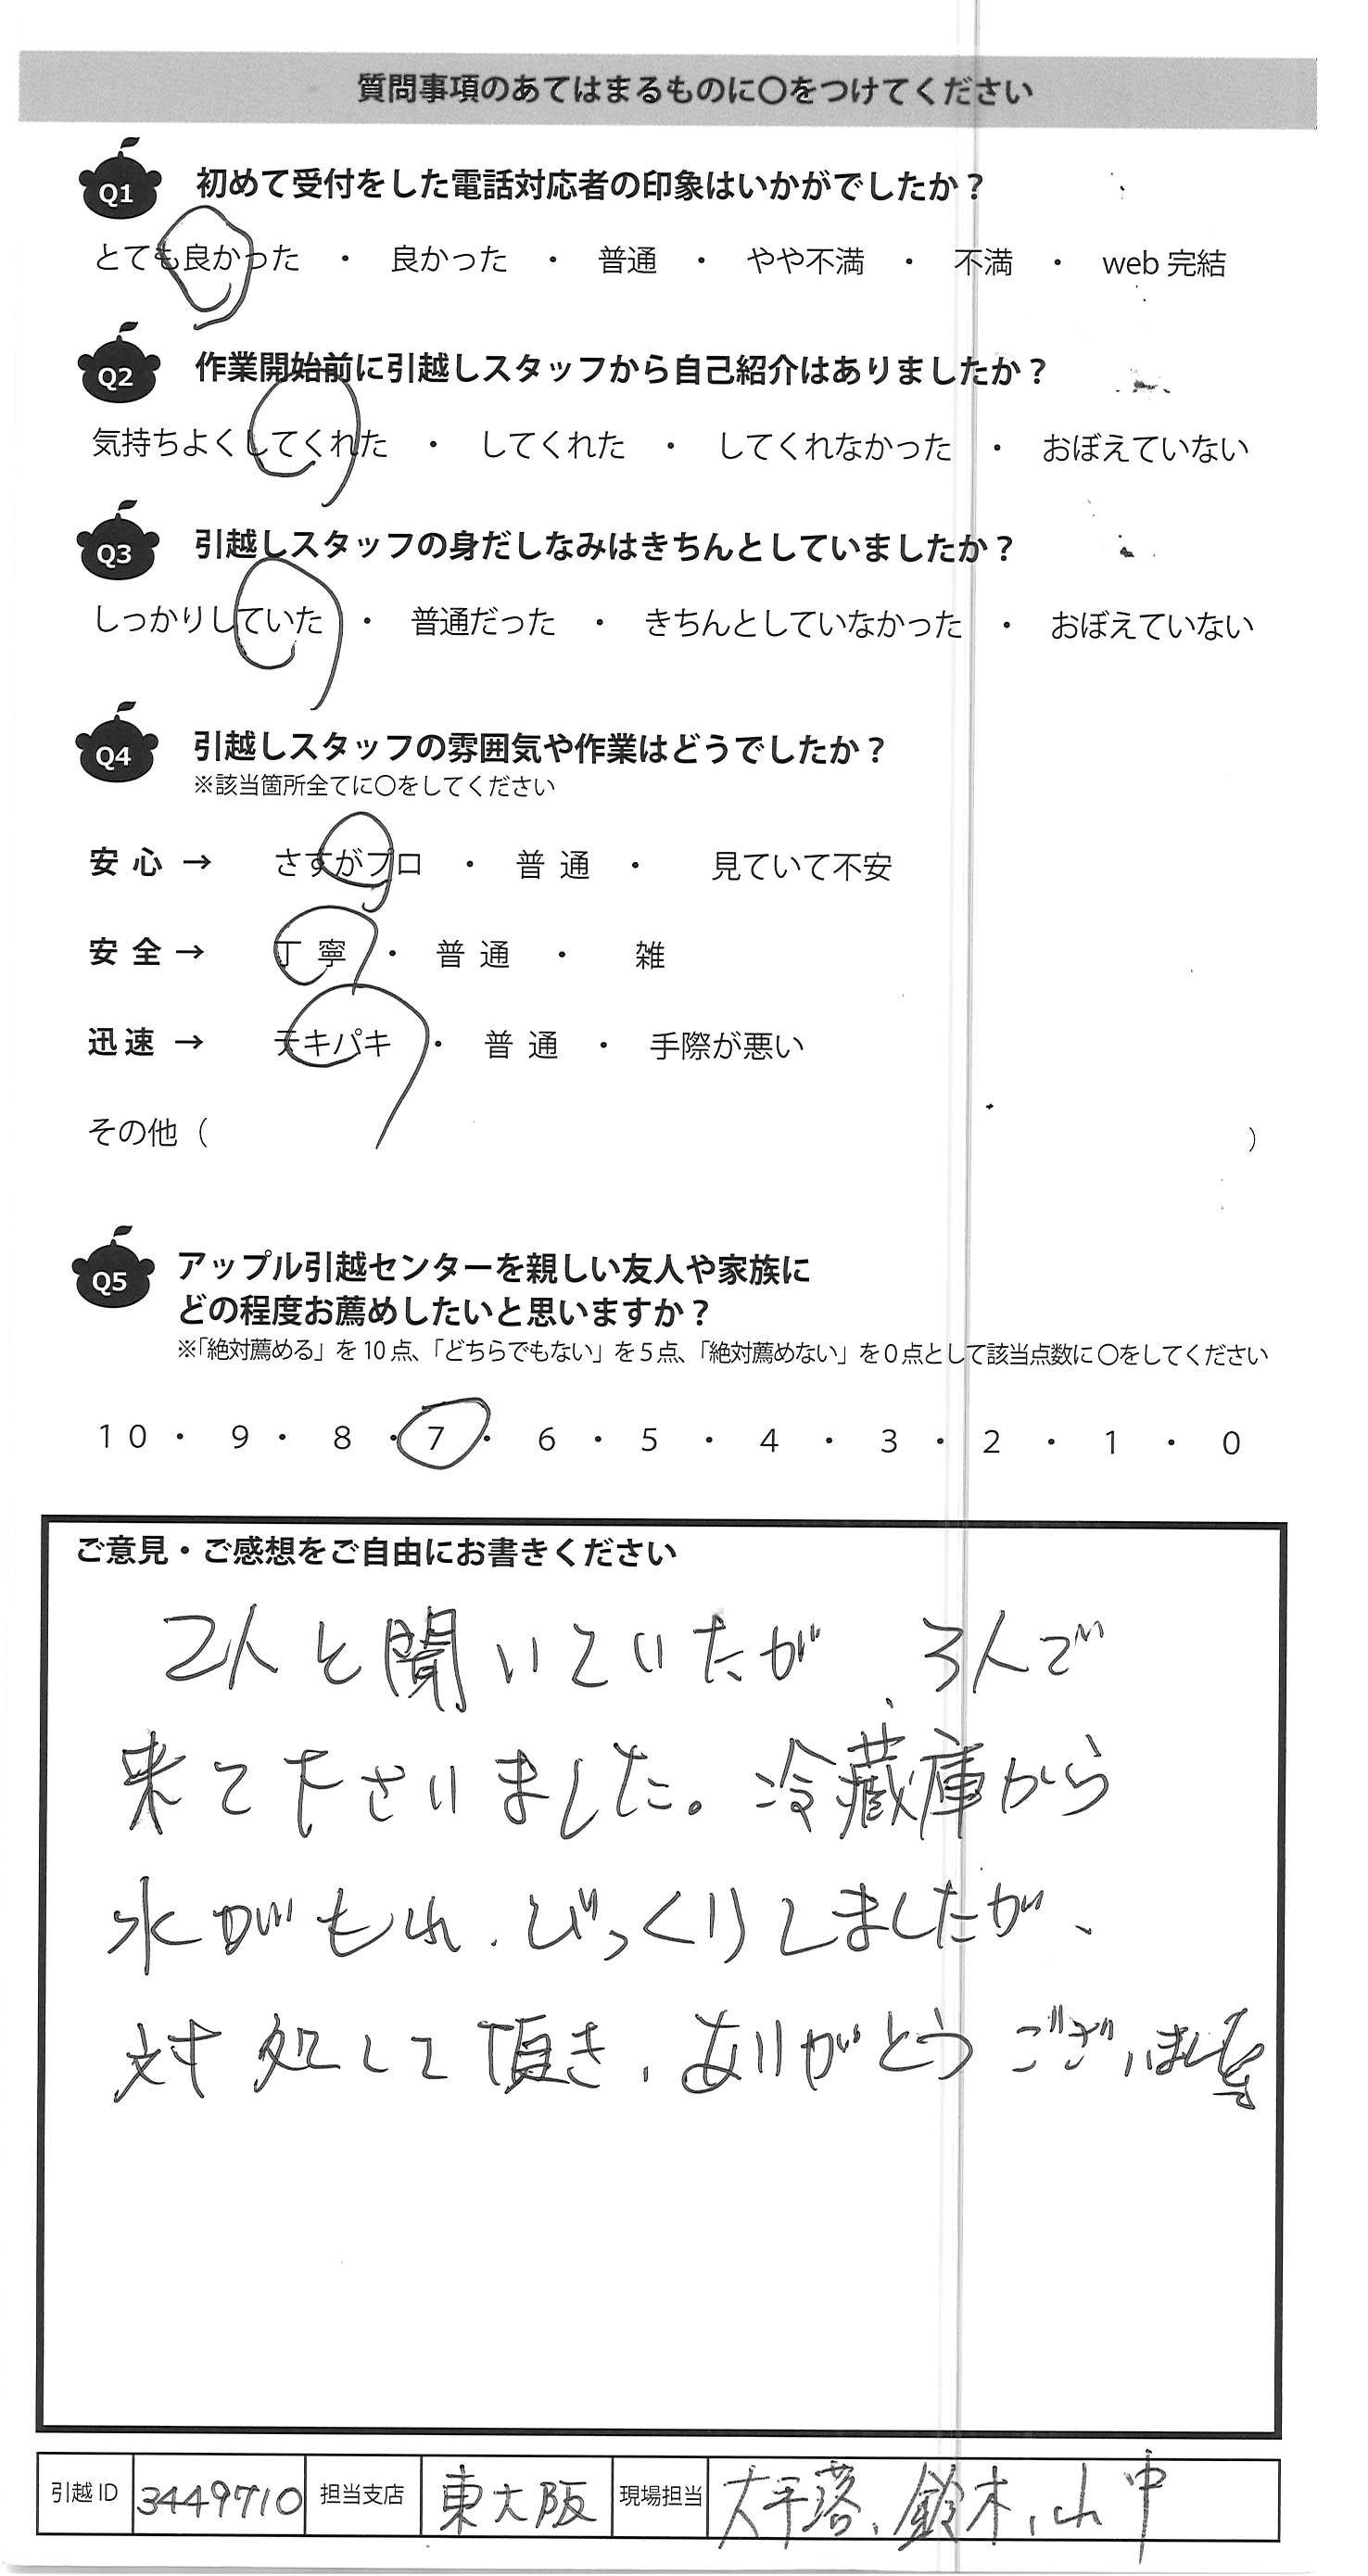 質問事項のあてはまるものに〇をつけてください
Q1 初めて受付をした電話対応者の印象はいかがでしたか？
とても良かった ・ 良かった ・ 普通 ・ やや不満 ・ 不満 ・ web 完結
Q2 作業開始前に引越しスタッフから自己紹介はありましたか？
気持ちよくしてくれた ・ してくれた ・ してくれなかった ・ おぼえていない
Q3 引越しスタッフの身だしなみはきちんとしていましたか？
しっかりしていた ・ 普通だった ・ きちんとしていなかった ・ おぼえていない
Q4 引越しスタッフの雰囲気や作業はどうでしたか？
※該当箇所全てに〇をしてください
安心 → さすがプロ ・ 普通 ・ 見ていて不安
安全 → 丁寧 ・ 普通 ・ 雑
迅速 → テキパキ ・ 普通 ・ 手際が悪い
その他（ ）
Q5 アップル引越センターを親しい友人や家族に
どの程度お薦めしたいと思いますか？
※「絶対薦める」を10点、「どちらでもない」を5点、「絶対薦めない」を0点として該当点数に〇をしてください
10 ・ 9 ・ 8 ・ 7 ・ 6 ・ 5 ・ 4 ・ 3 ・ 2 ・ 1 ・ 0
ご意見・ご感想をご自由にお書きください
2人と聞いていたが 3人で
来て下さいました。冷蔵庫から
水がもれ、びっくりしましたが、
対処して頂き、ありがとうございました
引越ID 3449710 担当支店 東大阪 現場担当 大平落、鈴木、山中